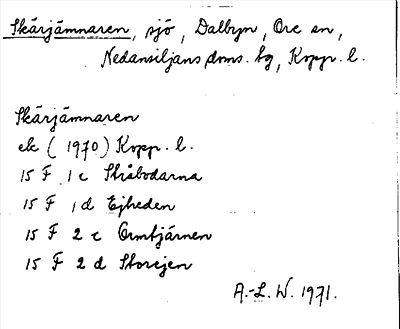 Skärjämnaren, sjö, Dalbyn, Ore sn,
Nedansiljans doms. hg, Kopp. l.
Skärjämnaren
ek (1970) Kopp. l.
15 F 1 c Stråbodarna
15 F 1 d Ejheden
15 F 2 c Ormtjärnen
15 F 2 d Storejen
A.-L. W. 1971.